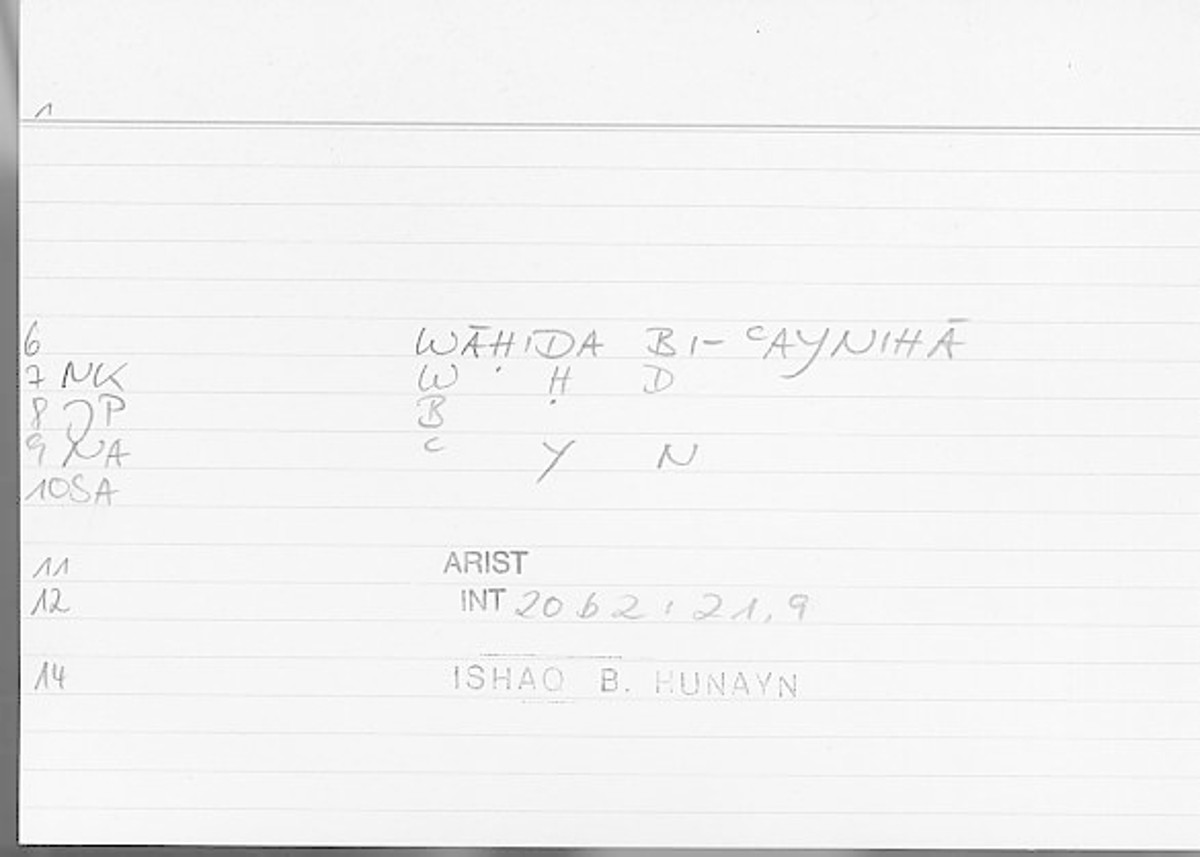 1
6 WĀḤIDA BI-ʿAYNIHĀ
7 NK W Ḥ D
8 JP B
9 NA ʿ Y N
10 SA
11 ARIST
12 INT 20b2; 21,9
14 ISHAQ B. HUNAYN